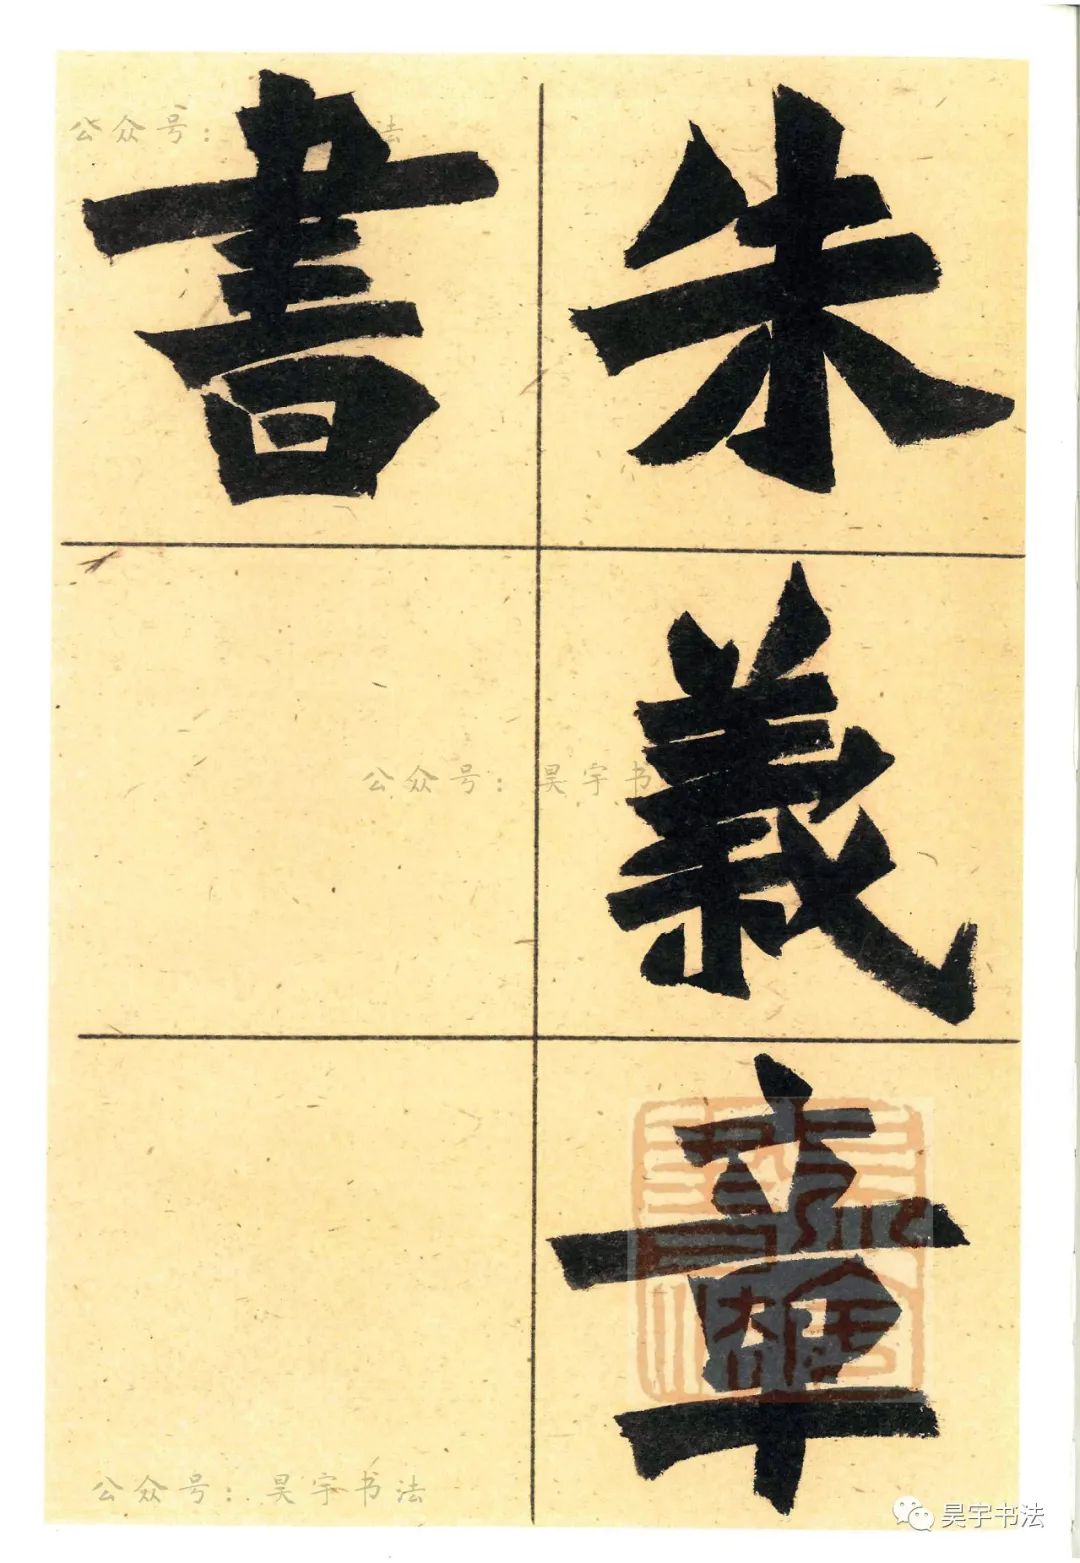 朱義章
書
公众号： 法
公众号：昊宇书
公众号：昊宇书法
昊宇书法